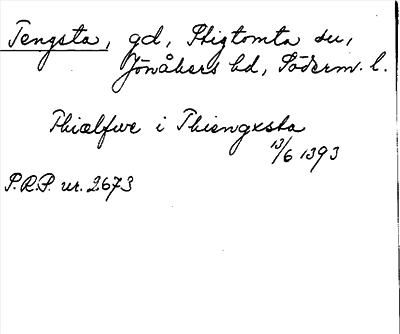 Tengsta, gd, Stigtomta sn,
Jönåkers hd, Söderm. l.
Thiælfwe i Thiengxsta
13/6 1393
P.R.P. nr. 2673